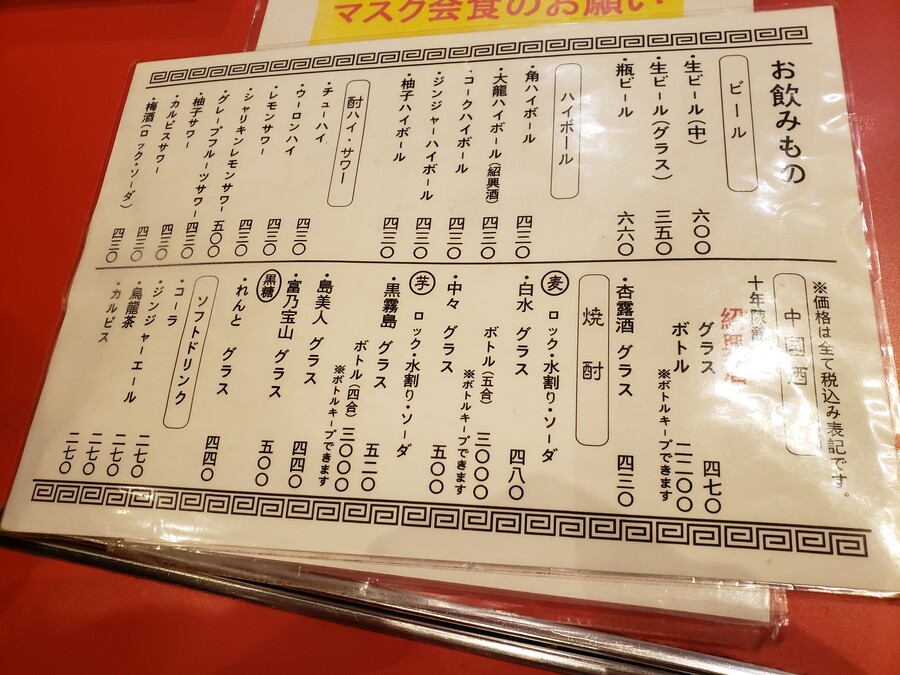 マスク会食のお願い
お飲みもの
ビール
・生ビール(中) 六〇〇
・生ビール(グラス) 三五〇
・瓶ビール 六六〇
ハイボール
・角ハイボール 四三〇
・大龍ハイボール(紹興酒) 四三〇
・コークハイボール 四三〇
・ジンジャーハイボール 四三〇
・柚子ハイボール 四三〇
酎ハイ・サワー
・チューハイ 四三〇
・ウーロンハイ 四三〇
・レモンサワー 四三〇
・シャリキンレモンサワー 五〇〇
・グレープフルーツサワー 四三〇
・柚子サワー 四三〇
・カルピスサワー 四三〇
・梅酒(ロック・ソーダ) 四三〇
※価格は全て税込み表記です。
中国酒
十年陳
紹興酒
グラス 四七〇
ボトル 二二〇〇
※ボトルキープできます
・杏露酒 グラス 四三〇
焼酎
麦 ロック・水割り・ソーダ
・白水 グラス 四八〇
ボトル(五合) 三〇〇〇
※ボトルキープできます
・中々 グラス 五〇〇
芋 ロック・水割り・ソーダ
・黒霧島 グラス 五二〇
ボトル(四合) 三〇〇〇
※ボトルキープできます
・島美人 グラス 四四〇
・富乃宝山 グラス 五〇〇
黒糖
・れんと グラス 四四〇
ソフトドリンク
・コーラ 二七〇
・ジンジャーエール 二七〇
・烏龍茶 二七〇
・カルピス 二七〇